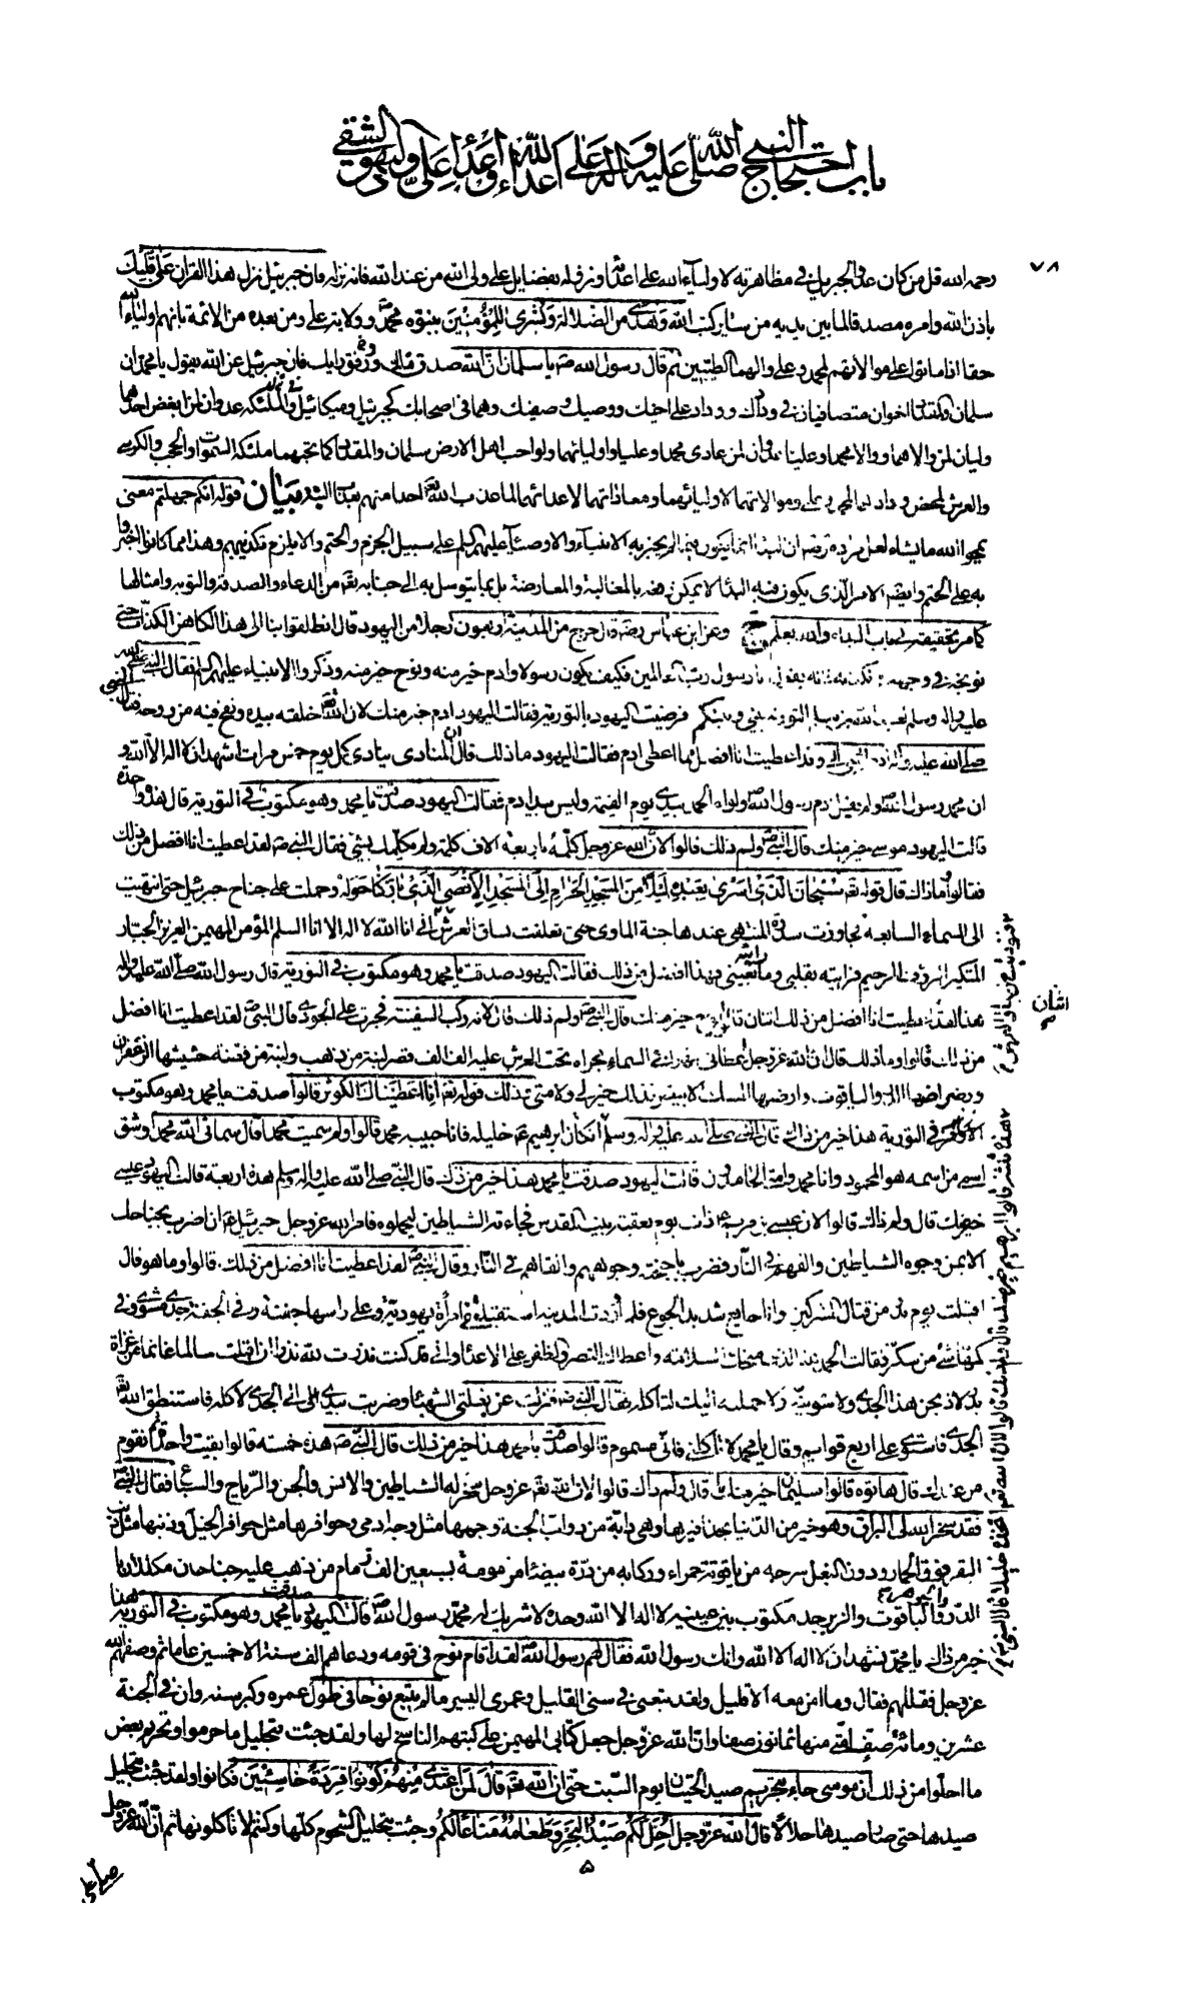 باب احتجاج النبي صلى الله عليه وآله على أعداء الله وأعداء علي واليهود الشقي
٧٨
رحمه الله قل من كان عدوا لجبريل في مظاهرته لاولياء الله على اعدائه ونزوله بفضايل علي ولي الله من عند الله فانه نزله فان جبرئيل نزل هذا القران على قلبك
باذن الله وامره مصدقا لما بين يديه من ساير كتب الله وهدى من الضلالة وبشرى للمؤمنين بنبوة محمد وولاية علي ومن بعده من الائمة بانهم اولياء الله
حقا اذا ماتوا على موالاتهم لمحمد وعلي والهما الطيبين ثم قال رسول الله ص يا سلمان ان الله صدق قيلك ووفق رايك فان جبرئيل عن الله يقول يا محمد ان
سلمان والمقداد اخوان متصافيان في ودادك ووداد علي اخيك ووصيك وصفيك وهما في اصحابك كجبرئيل وميكائيل في الملئكة عدوان لمن ابغض احدهما
وليان لمن والاهما ووالا محمدا وعليا عدوان لمن عادى محمدا وعليا واوليائهما ولو احب اهل الارض سلمان والمقداد كما تحبهما ملئكة السموات والحجب والكرسي
والعرش لمحض ودادهما لمحمد وعلي وموالاتهما لاوليائهما ومعاداتهما لاعدائهما لما عذب الله احدا منهم بعذاب البتة بيان قوله انكم جهلتم معنى
يمحوا الله ما يشاء لعل مراده ص ان البداء انما يكون فيما لم يخبر به الانبياء والاوصياء عليهم السلم على سبيل الجزم والحتم والا يلزم تكذيبهم وهذا مما كانوا اخبروا
به على الحتم وايضا الامر الذي يكون فيه البداء لا يمكن دفعه بالمغالبة والمعارضة بل بما يتوسل به الى جنابه تعالى من الدعاء والصدقة والتوبة وامثالها
كما مر تحقيقه في باب البداء والله يعلم ج وعن ابن عباس رضه قال خرج من المدينة اربعون رجلا من اليهود قال انطلقوا بنا الى هذا الكاهن الكذاب حتى
نوبخه في وجهه ونكذبه فانه يقول انا رسول رب العالمين فكيف يكون رسولا وادم خير منه ونوح خير منه وذكروا الانبياء عليهم السلم فقال النبي صلى الله
عليه واله وسلم لعبد الله بن سلام التورية بيني وبينكم فرضيت اليهود بالتورية فقالت اليهود ادم خير منك لان الله خلقه بيده ونفخ فيه من روحه فقال النبي
صلى الله عليه واله ادم النبي ابي وقد اعطيت انا افضل مما اعطى ادم فقالت اليهود ما ذلك قال ان المنادي ينادي كل يوم خمس مرات اشهد ان لا اله الا الله و
ان محمدا رسول الله ولم يقل ادم رسول الله ولواء الحمد بيدي يوم القيمة وليس بيد ادم فقالت اليهود صدقت يا محمد وهو مكتوب في التورية قال هذه واحدة
قالت اليهود موسى خير منك قال النبي ص ولم ذلك قالوا لان الله عز وجل كلمه باربعة الاف كلمة ولم يكلمك بشئ فقال النبي ص لقد اعطيت انا افضل من ذلك
فقالوا وما ذاك قال قوله تعالى سبحان الذي اسرى بعبده ليلا من المسجد الحرام الى المسجد الاقصى الذي باركنا حوله وحملت على جناح جبرئيل حتى انتهيت
الى السماء السابعة فجاوزت سدرة المنتهى عندها جنة الماوى حتى تعلقت بساق العرش فنوديت من ساق العرش اني انا الله لا اله الا انا السلم المؤمن المهيمن العزيز الجبار
المتكبر الرؤف الرحيم فرايته بقلبي وما رايته بعيني فهذا افضل من ذلك فقالت اليهود صدقت يا محمد وهو مكتوب في التورية قال رسول الله صلى الله عليه واله
هذه اثنان
من ذلك قالوا وما ذلك قال ان الله عز وجل اعطاني نهرا في السماء مجراه تحت العرش عليه الف الف قصر لبنة من ذهب ولبنة من فضة حشيشها الزعفران
ورضراضها الدر والياقوت وارضها المسك الابيض فذلك خير لي ولامتي وذلك قوله تعالى انا اعطيناك الكوثر قالوا صدقت يا محمد وهو مكتوب
في التورية هذا خير من ذاك
هذه ثلثة قالوا ابرهيم خير منك قال ولم ذلك قالوا لان الله تعالى اتخذه خليلا قال النبي ص
ان كان ابرهيم ع خليله فانا حبيبه محمد قالوا ولم سميت محمدا قال سماني الله محمدا وشق
اسمي من اسمه هو المحمود وانا محمد وامتي الحامدون قالت اليهود صدقت يا محمد هذا خير من ذلك قال النبي صلى الله عليه واله وسلم هذه اربعة قالت اليهود عيسى
خير منك قال ولم ذاك قالوا لان عيسى بن مريم ع كان ذات يوم بعقبة بيت المقدس فجاءته الشياطين ليحملوه فامر الله عز وجل جبرئيل ع ان اضرب بجناحك
الايمن وجوه الشياطين والقهم في النار فضرب باجنحته وجوههم والقاهم في النار وقال النبي ص لقد اعطيت انا افضل من ذلك قالوا وما هو قال
اقبلت يوم بدر من قتال المشركين وانا جايع شديد الجوع فلما وردت المدينة استقبلتني امرأة يهودية وعلى راسها جفنة وفي الجفنة جدي مشوي وفي
كمها شئ من سكر فقالت الحمد لله الذي منحك السلامة واعطاك النصر والظفر على الاعداء واني قد كنت نذرت لله نذرا ان اقبلت سالما غانما من غزاة
بدر لاذبحن هذا الجدي ولاشوينه ولاحملنه اليك لتاكله فقال النبي ص فنزلت عن بغلتي الشهباء وضربت بيدي الى الجدي لاكله فاستنطق الله
الجدي فاستوى على اربع قوايم وقال يا محمد لا تاكلني فاني مسموم قالوا صدقت يا محمد هذا خير من ذلك قال النبي ص هذه خمسة قالوا بقيت واحدة ثم نقوم
من عندك قال هاتوه قالوا سليمان خير منك قال ولم ذاك قالوا لان الله تعالى عز وجل سخر له الشياطين والانس والجن والرياح والسباع فقال النبي ص
فقد سخر الله لي البراق وهو خير من الدنيا بحذافيرها وهي دابة من دواب الجنة وجهها مثل وجه ادمي وحوافرها مثل حوافر الخيل وذنبها مثل ذنب
البقر فوق الحمار ودون البغل سرجه من ياقوتة حمراء وركابه من درة بيضاء مزمومة بسبعين الف زمام من ذهب عليه جناحان مكللان با
لدر والياقوت والزبرجد مكتوب بين عينيه لا اله الا الله وحده لا شريك له محمد رسول الله قالت اليهود صدقت يا محمد وهو مكتوب في التورية هذا
خير من ذاك يا محمد نشهد ان لا اله الا الله وانك رسول الله فقال لهم رسول الله لقد اقام نوح في قومه ودعاهم الف سنة الا خمسين عاما ثم وصفهم الله
عز وجل فقللهم فقال وما امن معه الا قليل ولقد تبعني في سني القليل وعمري اليسير ما لم يتبع نوحا في طول عمره وكبر سنه وان في الجنة
عشرين ومائة صف امتي منها ثمانون صفا وان الله عز وجل جعل كتابي المهيمن على كتبهم الناسخ لها ولقد جئت بتحليل ما حرموا وتحريم بعض
ما احلوا من ذلك ان موسى جاء بتحريم صيد الحيتان يوم السبت حتى ان الله تعالى قال لمن اعتدى منهم كونوا قردة خاسئين فكانوا ولقد جئت بتحليل
صيدها حتى صار صيدها حلالا قال الله عز وجل احل لكم صيد البحر وطعامه متاعا لكم وجئت بتحليل الشحوم كلها وكنتم لا تاكلونها ثم ان الله عز وجل
صلى علي
٥